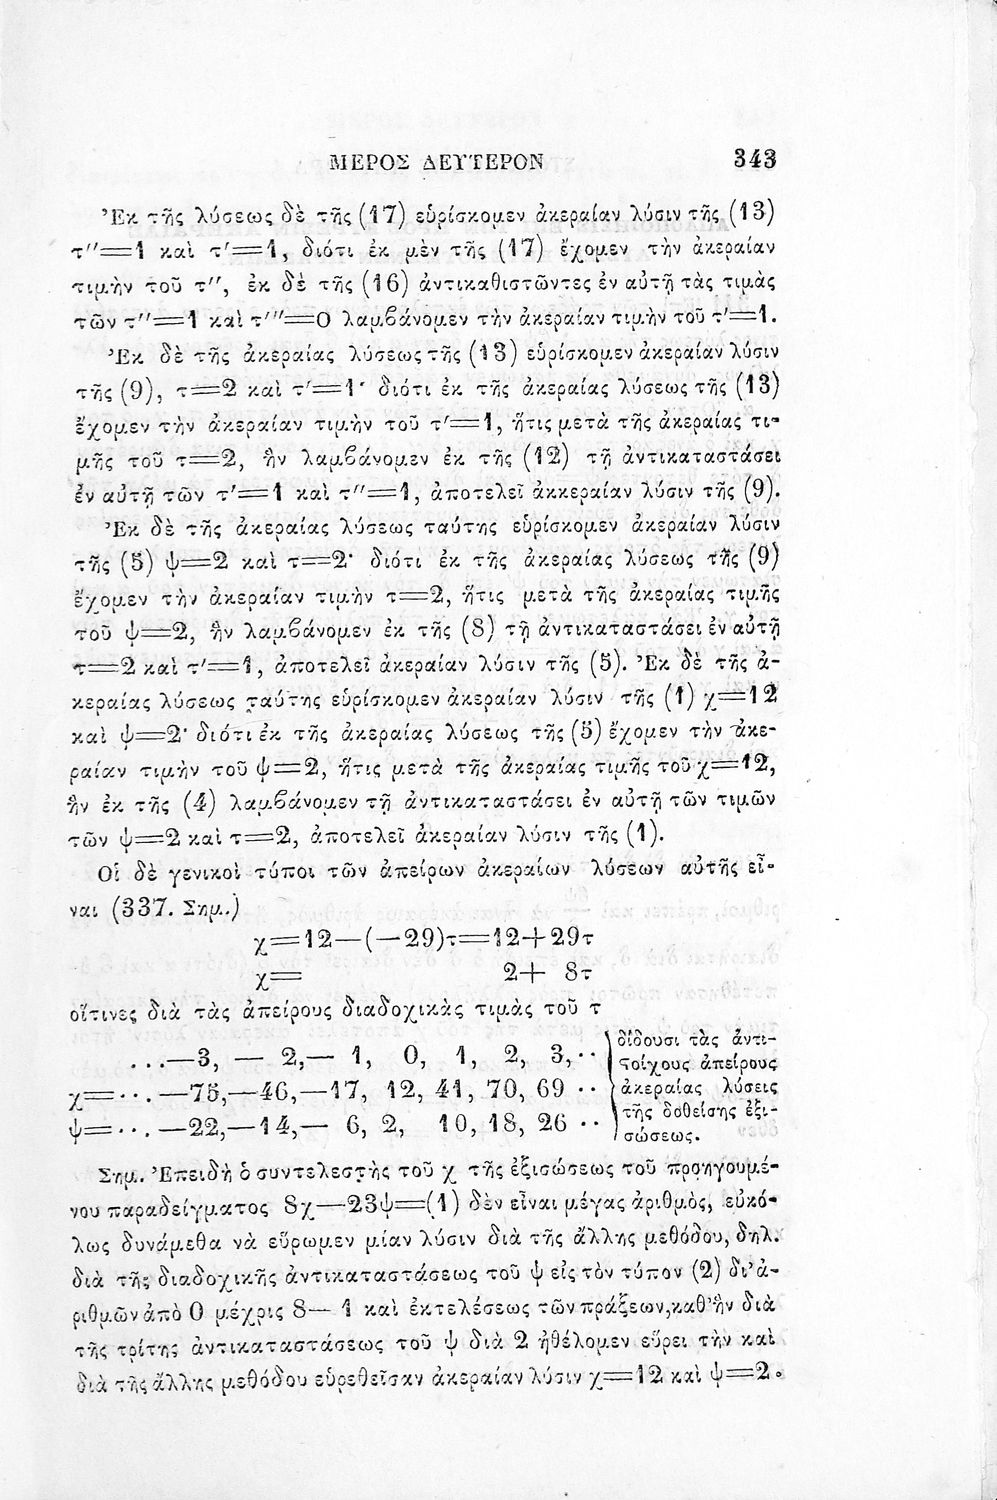 ΜΕΡΟΣ ΔΕΥΤΕΡΟΝ 343
Ἐκ τῆς λύσεως δὲ τῆς (17) εὑρίσκομεν ἀκεραίαν λύσιν τῆς (13)
τ''=1 καὶ τ'=1, διότι ἐκ μὲν τῆς (17) ἔχομεν τὴν ἀκεραίαν
τιμὴν τοῦ τ'', ἐκ δὲ τῆς (16) ἀντικαθιστῶντες ἐν αὐτῇ τὰς τιμὰς
τῶν τ''=1 καὶ τ'''=0 λαμβάνομεν τὴν ἀκεραίαν τιμὴν τοῦ τ'=1.
Ἐκ δὲ τῆς ἀκεραίας λύσεως τῆς (13) εὑρίσκομεν ἀκεραίαν λύσιν
τῆς (9), τ=2 καὶ τ'=1· διότι ἐκ τῆς ἀκεραίας λύσεως τῆς (13)
ἔχομεν τὴν ἀκεραίαν τιμὴν τοῦ τ'=1, ἥτις μετὰ τῆς ἀκεραίας τι-
μῆς τοῦ τ=2, ἣν λαμβάνομεν ἐκ τῆς (12) τῇ ἀντικαταστάσει
ἐν αὐτῇ τῶν τ'=1 καὶ τ''=1, ἀποτελεῖ ἀκκεραίαν λύσιν τῆς (9).
Ἐκ δὲ τῆς ἀκεραίας λύσεως ταύτης εὑρίσκομεν ἀκεραίαν λύσιν
τῆς (5) ψ=2 καὶ τ=2· διότι ἐκ τῆς ἀκεραίας λύσεως τῆς (9)
ἔχομεν τὴν ἀκεραίαν τιμὴν τ=2, ἥτις μετὰ τῆς ἀκεραίας τιμῆς
τοῦ ψ=2, ἣν λαμβάνομεν ἐκ τῆς (8) τῇ ἀντικαταστάσει ἐν αὐτῇ
τ=2 καὶ τ'=1, ἀποτελεῖ ἀκεραίαν λύσιν τῆς (5). Ἐκ δὲ τῆς ἀ-
κεραίας λύσεως ταύτης εὑρίσκομεν ἀκεραίαν λύσιν τῆς (1) χ=12
καὶ ψ=2· διότι ἐκ τῆς ἀκεραίας λύσεως τῆς (5) ἔχομεν τὴν ἀκε-
ραίαν τιμὴν τοῦ ψ=2, ἥτις μετὰ τῆς ἀκεραίας τιμῆς τοῦ χ=12,
ἣν ἐκ τῆς (4) λαμβάνομεν τῇ ἀντικαταστάσει ἐν αὐτῇ τῶν τιμῶν
τῶν ψ=2 καὶ τ=2, ἀποτελεῖ ἀκεραίαν λύσιν τῆς (1).
Οἱ δὲ γενικοὶ τύποι τῶν ἀπείρων ἀκεραίων λύσεων αὐτῆς εἶ-
ναι (337. Σημ.)
χ=12—(—29)τ=12+29τ
χ= 2+ 8τ
οἵτινες διὰ τὰς ἀπείρους διαδοχικὰς τιμὰς τοῦ τ
...—3, — 2,— 1, 0, 1, 2, 3,··
χ=··.—75,—46,—17, 12, 41, 70, 69 ··
ψ=··.—22,—14,— 6, 2, 10, 18, 26 ··
δίδουσι τὰς ἀντι-
στοίχους ἀπείρους
ἀκεραίας λύσεις
τῆς δοθείσης ἐξι-
σώσεως.
Σημ. Ἐπειδὴ ὁ συντελεστὴς τοῦ χ τῆς ἐξισώσεως τοῦ προηγουμέ-
νου παραδείγματος 8χ—23ψ=(1) δὲν εἶναι μέγας ἀριθμὸς, εὐκό-
λως δυνάμεθα νὰ εὕρωμεν μίαν λύσιν διὰ τῆς ἄλλης μεθόδου, δηλ.
διὰ τῆς διαδοχικῆς ἀντικαταστάσεως τοῦ ψ εἰς τὸν τύπον (2) δι' ἀ-
ριθμῶν ἀπὸ 0 μέχρις 8— 1 καὶ ἐκτελέσεως τῶν πράξεων, καθ' ἣν διὰ
τῆς τρίτης ἀντικαταστάσεως τοῦ ψ διὰ 2 ἠθέλομεν εὕρει τὴν καὶ
διὰ τῆς ἄλλης μεθόδου εὑρεθεῖσαν ἀκεραίαν λύσιν χ=12 καὶ ψ=2.